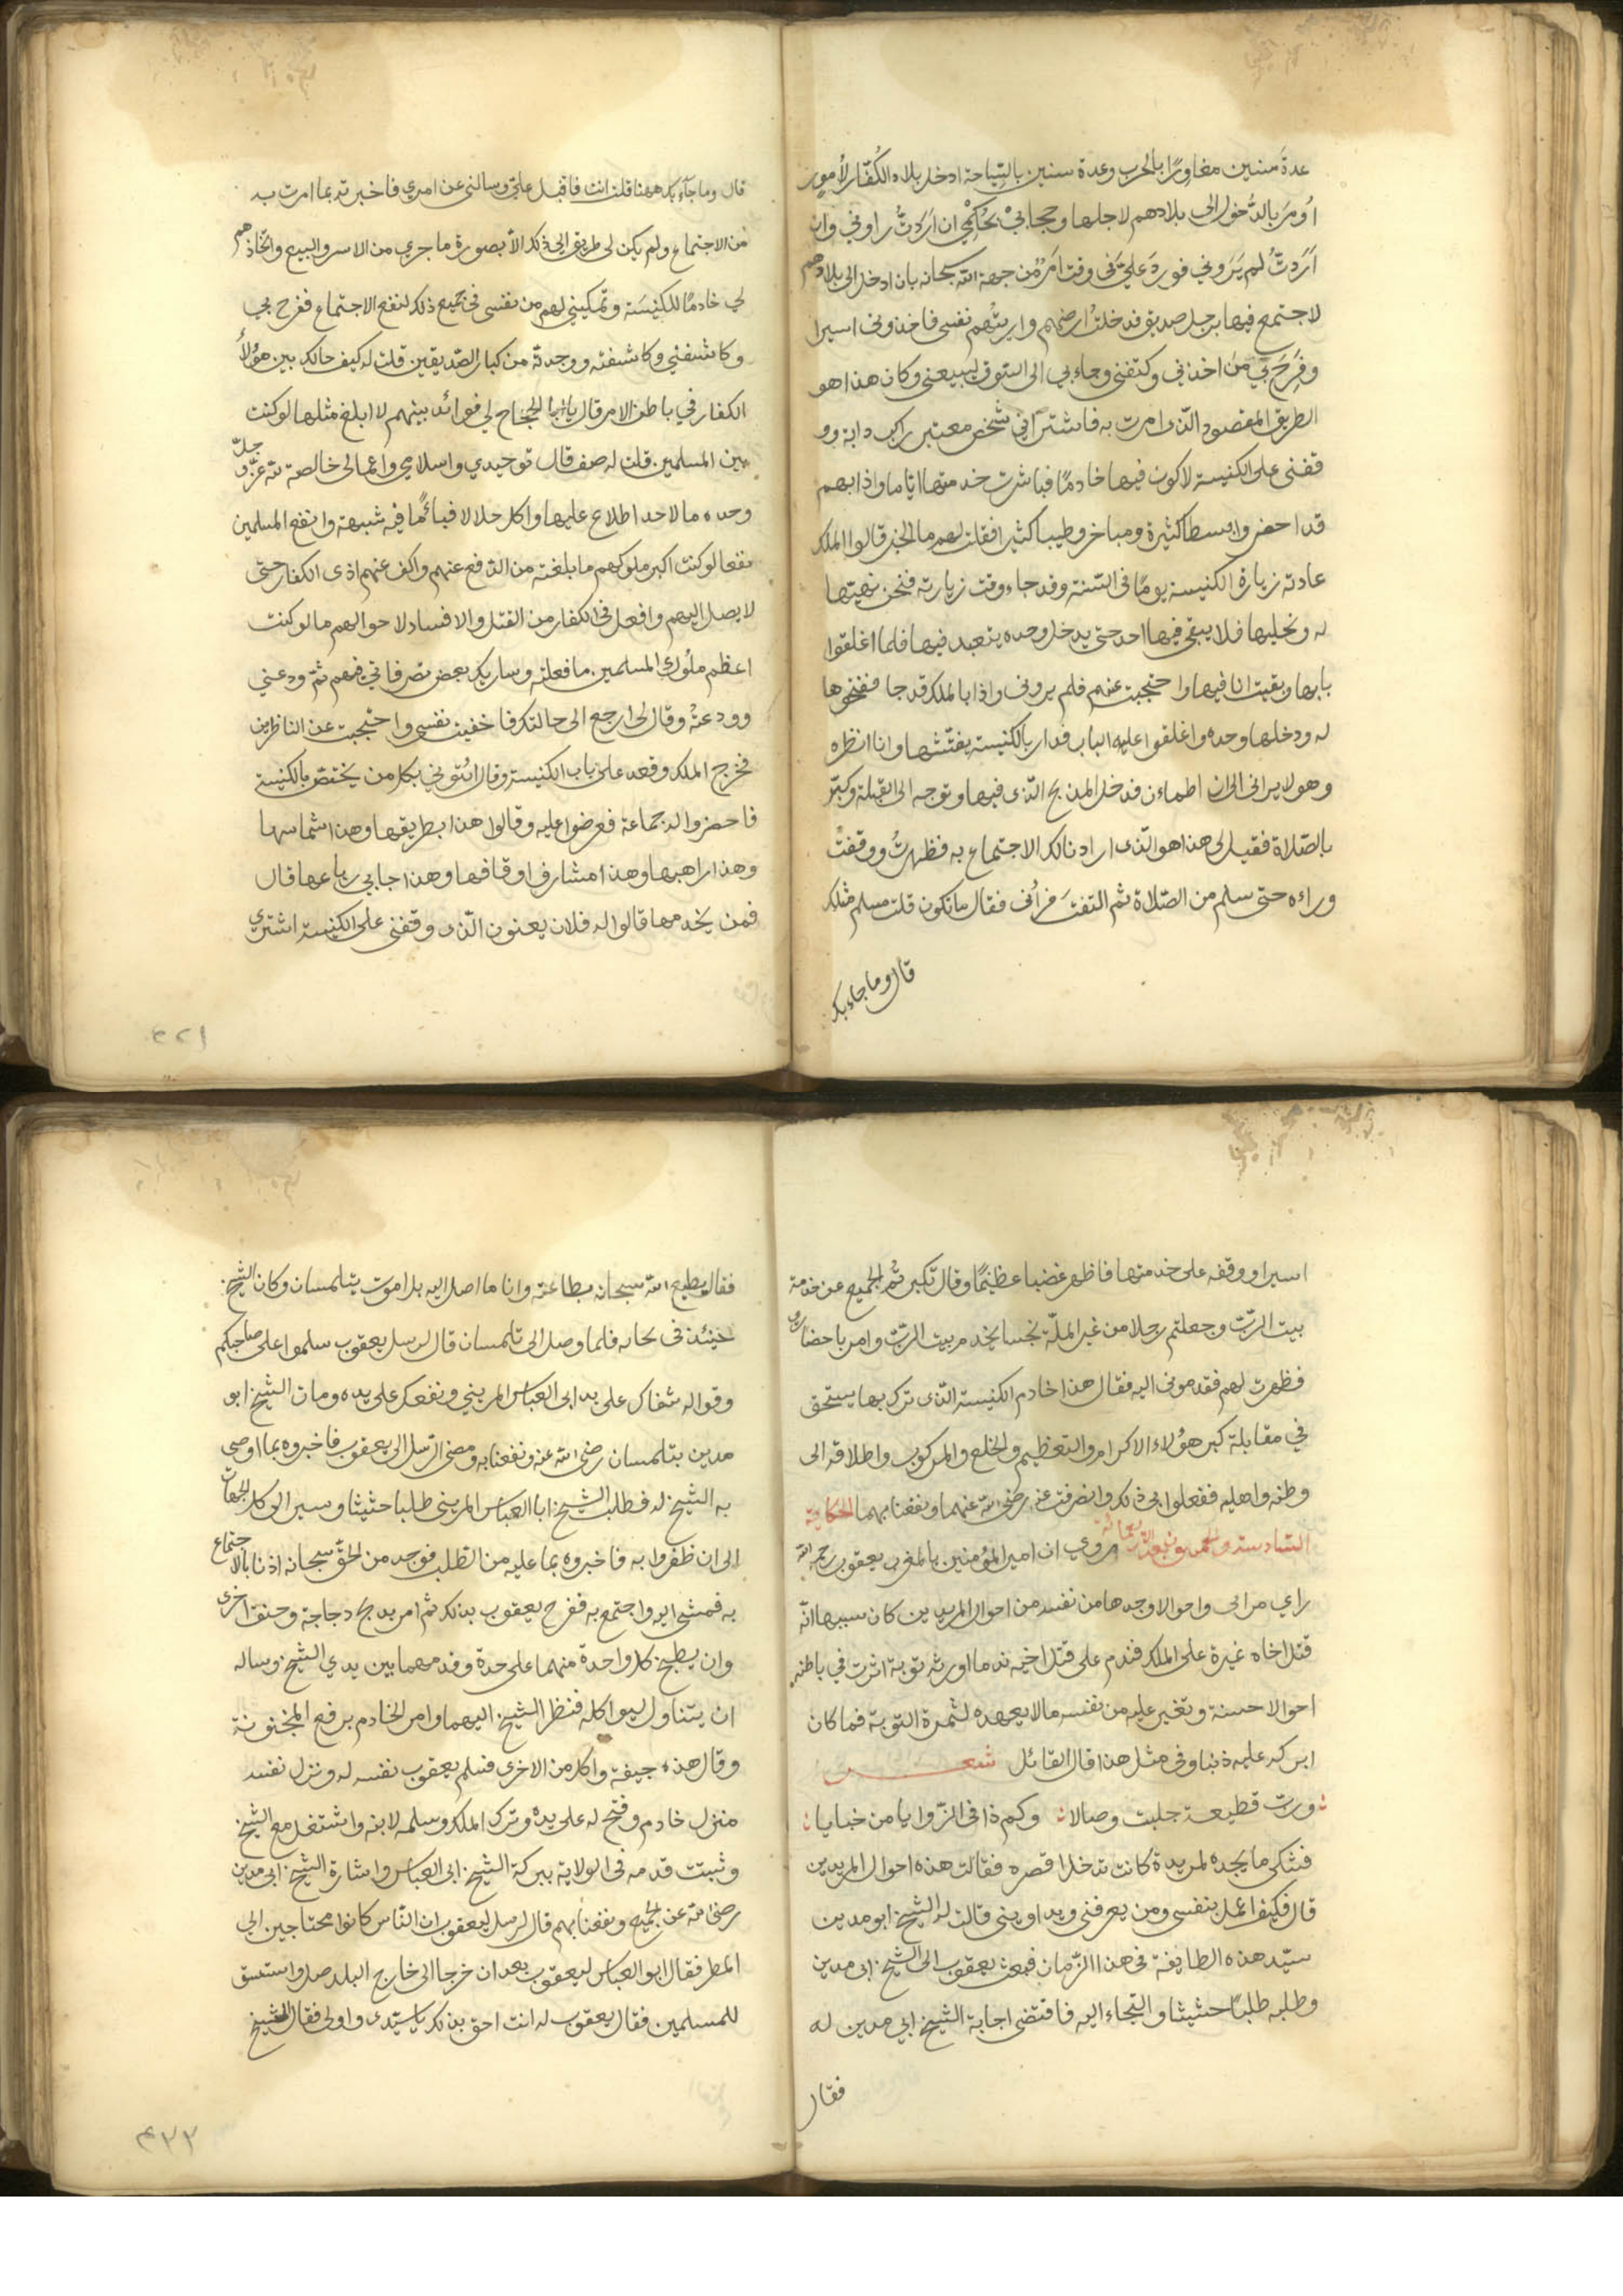 عدة سنين مغاورًا بالحرب وعدة سنين بالسّياحة ادخل بلاد الكُفّار لأمور
اُومَر بالدُّخول الى بلادهم لاجلها وحجابيْ بحُكْمِي ان اَرَدتُّ راوني وان
اَرَدتُّ لم يَرَوني فورد عليَّ في وقت امرٌ من جهة الله سبحانه بان ادخل الى بلادهم
لاجتمع فيها برجل صديق فدخلت ارضهم واريتهم نفسى فاخذونى اسيرا
وفَرِحَ بي من اخذنى وكتفنى وجاء بي الى السّوق ليبيعنى وكان هذا هو
الطريق المقصود الّذى امرت به فاشترانى شخص معتبر راكب دابة وو
قفنى على الكنيسة لاكون فيها خادمًا فباشرت خدمتها اياما واذا بهم
قد احضروا بسطا كثيرة ومباخر وطيبا كثيرا فقلت لهم ما الخبر قالوا الملك
عادته زيارة الكنيسة يومًا فى السّنة وقد جاء وقت زيارته فنحن نهيّئها
له ونخليها فلا يبقى فيها احد حتى يدخل وحده يتعبد فيها فلما اغلقوا
بابها وبقيت انا فيها واحتجبت عنهم فلم يرونى واذا بالملك قد جا ففتحوها
له ودخلها وحده واغلقوا عليه الباب فدار بالكنيسة يفتّشها وانا انظره
وهو لا يرانى الى ان اطماءن فدخل المذبح الّذى فيها وتوجه الى القبلة وكبّر
بالصّلاة فقيل لى هذا هو الّذى ارادنا لك الاجتماع به فظهرتُ ووقفتُ
وراءه حتى سلم من الصّلاة ثم التفتَ فرأنى فقال ما تكون قلت مسلم مثلك
قال وما جاء بك
قال وما جآء بك ههنا قلت انت فاقبل عليّ وسالنى عن امري فاخبرته بما امرت به
من الاجتماع ولم يكن لى طريق الى ذلك الّا بصورة ما جري من الاسر والبيع واتّخاذهم
لى خادمًا للكنيسَة وتمكيني لهم من نفسى فى جميع ذلك لنفع الاجتماع ففرح بي
وكاشفني وكاشفته ووجدته من كبار الصّديقين قلت له كيف حالك بين هؤلأ
الكفار في باطن الامر قال يا ابا الحجّاج لي فوائد بينهم لا ابلغ مثلها لو كنت
بين المسلمين قلت له صف قال توحيدي واسلامي واعمالى خالصة لله عزّ وجلّ
وحده ما لاحد اطلاع عليها واكل حلالا فبائمًا فيه شبهة وانفع المسلمين
نفعا لو كنت اكبر ملوكهم ما بلغته من الدّفع عنهم واكف عنهم اذى الكفار حتى
لا يصل اليهم وافعل فى الكفار من القتل والافساد لاحوالهم ما لو كنت
اعظم ملُوك المسلمين ما فعلته وساريك بعض تصرفاتي فيهم ثمّ ودعني
وودعتهُ وقال لى ارجع الى حالتك فاخفيت نفسى واحتجبت عن الناظرين
فخرج الملك وقعد على باب الكنيسة وقال ائتوني بكل من يختصّ بالكنيسة
فاحضروا له جماعة فعرضوا عليه وقالوا هذا بطريقها وهذا شماسها
وهذا راهبها وهذا مشارف اوقافها وهذا جابي رباعها قال
فمن يخدمها قالوا له فلان يعنون الّذى وقفني على الكنيسة اشترى
٤٢١
اسيرا ووقفه على خدمتها فاظهر غضبا عظيمًا وقال تكبّرتُم الجميع عن خدمة
بيت الربّ وجعلتم رجلا من غير الملّة نجسا يخدم بيت الربّ وامر باحضارى
فظهرت لهم فقدمونى اليه فقال هذا خادم الكنيسة الّذى تركّ بها يستحق
في مقابلة كبر هؤلاء الاكرام والتعظيم والخلع والمركوب واطلاقه الى
وطنه واهليه ففعلوا بى ذلك وانصرفت عنه رضى الله عنهما ونفعنا بهما الحكاية
السّادسة والخمسون بعد الاربعمائة روي ان امير المؤمنين بالمغرب يعقوب رحمه الله
راي مرائى واحوالا وجدها من نفسه من احوال المريدين كان سببها انّه
قتل اخاه غيرة على الملك فندم على قتل اخيه ندما اورثه توبة اثرت في باطنه
احوالا حسنة وتغير عليه من نفسه ما لا يعهده لثمرة التوبة فما كان
ابركه عليه ذنبا وفى مثل هذا قال القائل شعر
وربّ قطيعة جلبت وصالا وكم ذا فى الزّوايا من خبايا
فشكى ما يجده لمريدة كانت تدخل قصره فقالت هذه احوال المريدين
قال فكيف اعمل بنفسى ومن يعرفنى ويداويني قالت له الشيخ ابو مدين
سيّد هذه الطايفة فى هذا الزّمان فبعث يعقوب الى الشّيخ ابى مدين
وطلبه طلبًا حثيثا والتجاء اليه فاقتضى اجابة الشيخ ابي مدين له
فقال
فقال يطيع الله سبحانه بطاعته وانا ما اصل اليه بل اموت بتلمسان وكان الشيخ
حينئذ فى بجاية فلما وصل الى تلمسان قال لرسل يعقوب سلموا على صاحبكم
وقولوا له شفاك على يد ابى العباس المريني ونفعك على يده ومات الشيخ ابو
مدين بتلمسان رضى الله عنه ونفعنا به ومضى الرسل الى يعقوب فاخبروه بما اوصى
به الشيخ له فطلب الشيخ ابا العباس المرينى طلبا حثيثا وسير الى كل الجهات
الى ان ظفروا به فاخبروه بما عليه من الطلب فوجد من الحقّ سبحانه اذنا بالاجتماع
به فمشى اليه واجتمع به ففرح يعقوب بذلك ثم امر بذبح دجاجة وخنق اخرى
وان يطبخ كل واحدة منهما على حدة وقدمهما بين يدي الشيخ وساله
ان يتناول ليواكله فنظر الشيخ اليهما وامر الخادم برفع المخنونقة
وقال هذه جيفة واكل من الاخرى فسلم يعقوب نفسه له ونزل نفسه
منزل خادم وفتح له على يده وترك الملك وسلمه لابنه واشتغل مع الشيخ
وثبتت قدمه فى الولاية ببركة الشيخ ابى العباس واشارة الشيخ ابي مدين
رضى الله عن الجميع ونفعنا بهم قال لرسل ليعقوب ان النّاس كانوا محتاجين الى
المطر فقال ابو العباس ليعقوب بعد ان خرجا الى خارج البلد صل واستسق
للمسلمين فقال يعقوب له انت احق بذلك يا سيّدى واولى فقال الشيخ
٤٢٢